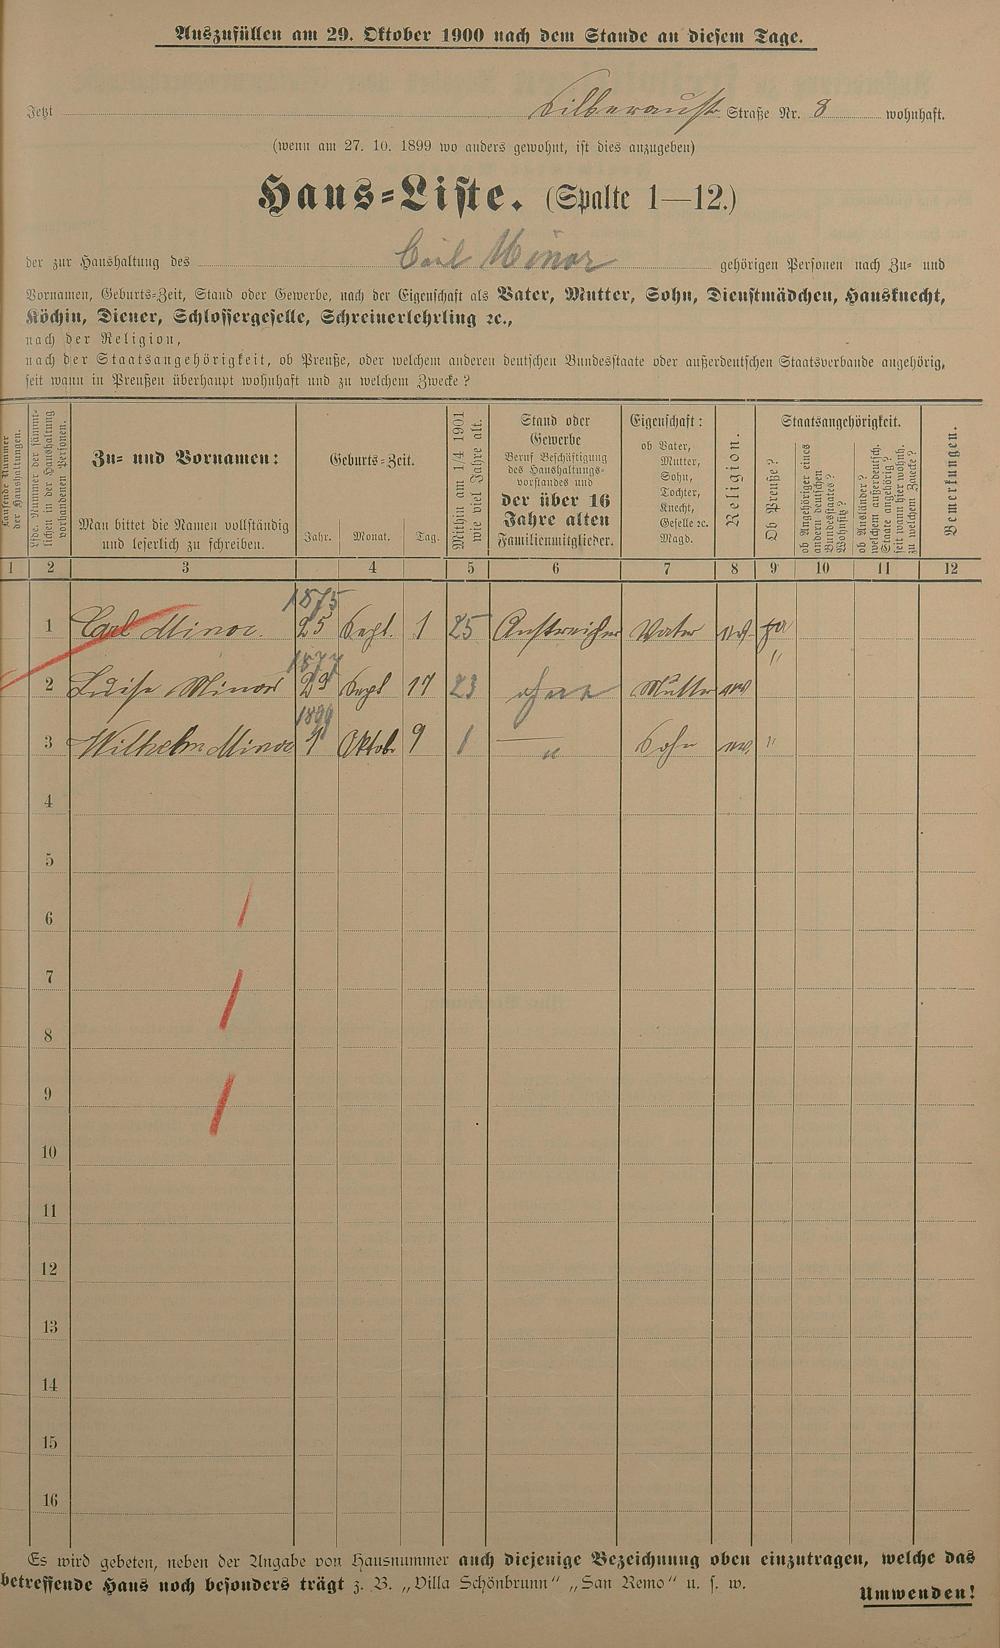 Auszufüllen am 29. Oktober 1900 nach dem Stande an diesem Tage.
Jetzt Silberaustr. Straße Nr. 8 wohnhaft.
(wenn am 27. 10. 1899 wo anders gewohnt, ist dies anzugeben)
Haus-Liste. (Spalte 1—12.)
der zur Haushaltung des Carl Minor gehörigen Personen nach Zu- und
Vornamen, Geburts-Zeit, Stand oder Gewerbe, nach der Eigenschaft als Vater, Mutter, Sohn, Dienstmädchen, Hausknecht,
Köchin, Diener, Schlossergeselle, Schreinerlehrling ꝛc.,
nach der Religion,
nach der Staatsangehörigkeit, ob Preuße, oder welchem anderen deutschen Bundesstaate oder außerdeutschen Staatsverbande angehörig,
seit wann in Preußen überhaupt wohnhaft und zu welchem Zwecke?
Laufende Nummer der Haushaltungen.
Lfde. Nummer der sämmtlichen in der Haushaltung vorhandenen Personen.
Zu- und Vornamen:
Man bittet die Namen vollständig
und leserlich zu schreiben.
Geburts-Zeit.
Jahr. Monat. Tag.
Mithin am 1/4 1901
wie viel Jahre alt.
Stand oder
Gewerbe
Beruf Beschäftigung
des Haushaltungs-
vorstandes und
der über 16
Jahre alten
Familienmitglieder.
Eigenschaft:
ob Vater,
Mutter,
Sohn,
Tochter,
Knecht,
Geselle ꝛc.
Magd.
Religion.
Staatsangehörigkeit.
Ob Preuße?
ob Angehöriger eines
andern deutschen
Bundesstaates?
Wohnsitz?
ob Ausländer?
welchem außerdeutsch.
Staate angehörig?
seit wann hier wohnh.
zu welchem Zwecke?
Bemerkungen.
1 2 3 4 5 6 7 8 9 10 11 12
1875
1 Carl Minor. 25 Sept. 1 25 Anstreicher Vater ev. ja
1877
2 Luise Minor 23 Sept 17 23 ohne Mutter ev "
1899
3 Wilhelm Minor 1 Oktob. 9 1 — " Sohn ev. "
4
5
6
7
8
9
10
11
12
13
14
15
16
Es wird gebeten, neben der Angabe von Hausnummer auch diejenige Bezeichnung oben einzutragen, welche das
betreffende Haus noch besonders trägt z. B. „Villa Schönbrunn“ „San Remo“ u. s. w.
Umwenden!